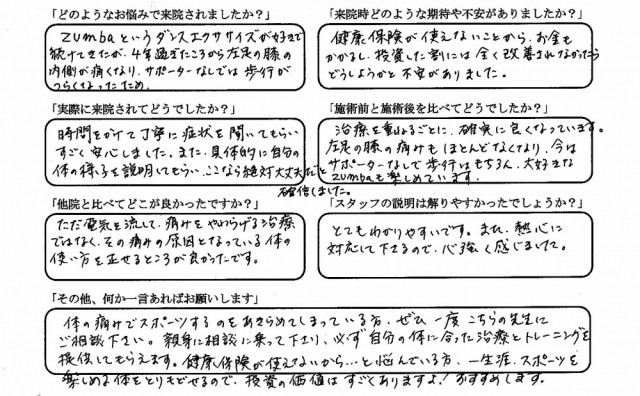 「どのようなお悩みで来院されましたか？」
Zumbaというダンスエクササイズが好きで
続けてきたが、4年過ぎたころから左足の膝の
内側が痛くなり、サポーターなしでは歩行が
つらくなったため。
「来院時どのような期待や不安がありましたか？」
健康保険が使えないことから、お金も
かかるし、投資した割には全く改善されなかったら
どうしようかと不安がありました。
「実際に来院されてどうでしたか？」
時間をかけて丁寧に症状を聞いてもらい
すごく安心しました。また、具体的に自分の
体の様子を説明してもらい、ここなら絶対大丈夫だと
確信しました。
「施術前と施術後を比べてどうでしたか？」
治療を重ねるごとに、確実に良くなっています。
左足の膝の痛みもほとんどなくなり、今は
サポーターなしで歩行はもちろん、大好きな
Zumbaも楽しめています。
「他院と比べてどこが良かったですか？」
ただ電気を流して、痛みをやわらげる治療
ではなく、その痛みの原因となっている体の
使い方を正せるところが良かったです。
「スタッフの説明は解りやすかったでしょうか？」
とてもわかりやすいです。また、熱心に
対応して下さるので、心強く感じました。
「その他、何か一言あればお願いします」
体の痛みでスポーツするのをあきらめてしまっている方、ぜひ一度こちらの先生に
ご相談下さい。親身に相談に乗って下さり、必ず自分の体に合った治療とトレーニングを
提供してもらえます。健康保険が使えないから…と悩んでいる方、一生涯、スポーツを
楽しめる体をとりもどせるので、投資の価値はすごくありますよ！おすすめします。